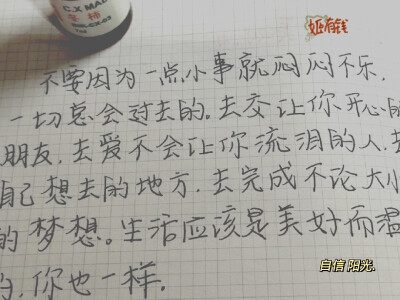 C.X MAD
冬柿
姬有钱
不要因为一点小事就闷闷不乐，
一切总会过去的。去交让你开心的
朋友，去爱不会让你流泪的人，去
自己想去的地方，去完成不论大小
的梦想。生活应该是美好而温
的，你也一样。
自信 阳光.